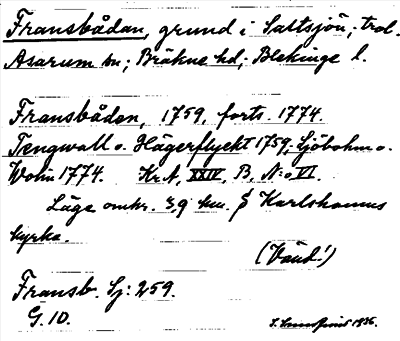 Fransbådan, grund i Saltsjön; trol.
Asarum sn; Bräkne hd; Blekinge l.
Fransbådan, 1759, forts. 1774.
Tengwall o. Hägerflycht 1759; Sjöbohm o.
Wohn 1774. Kr.A, XXIV, B, N:o VI.
Läge omkr. 3,9 km. S Karlshamns
kyrka.
(Vänd!)
Fransb. Sj: 259.
G. 10.
1936.